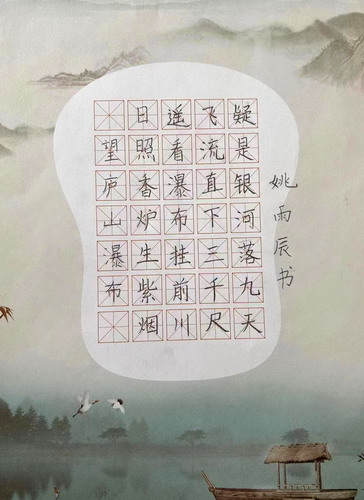 望庐山瀑布
日照香炉生紫烟
遥看瀑布挂前川
飞流直下三千尺
疑是银河落九天
姚雨辰书